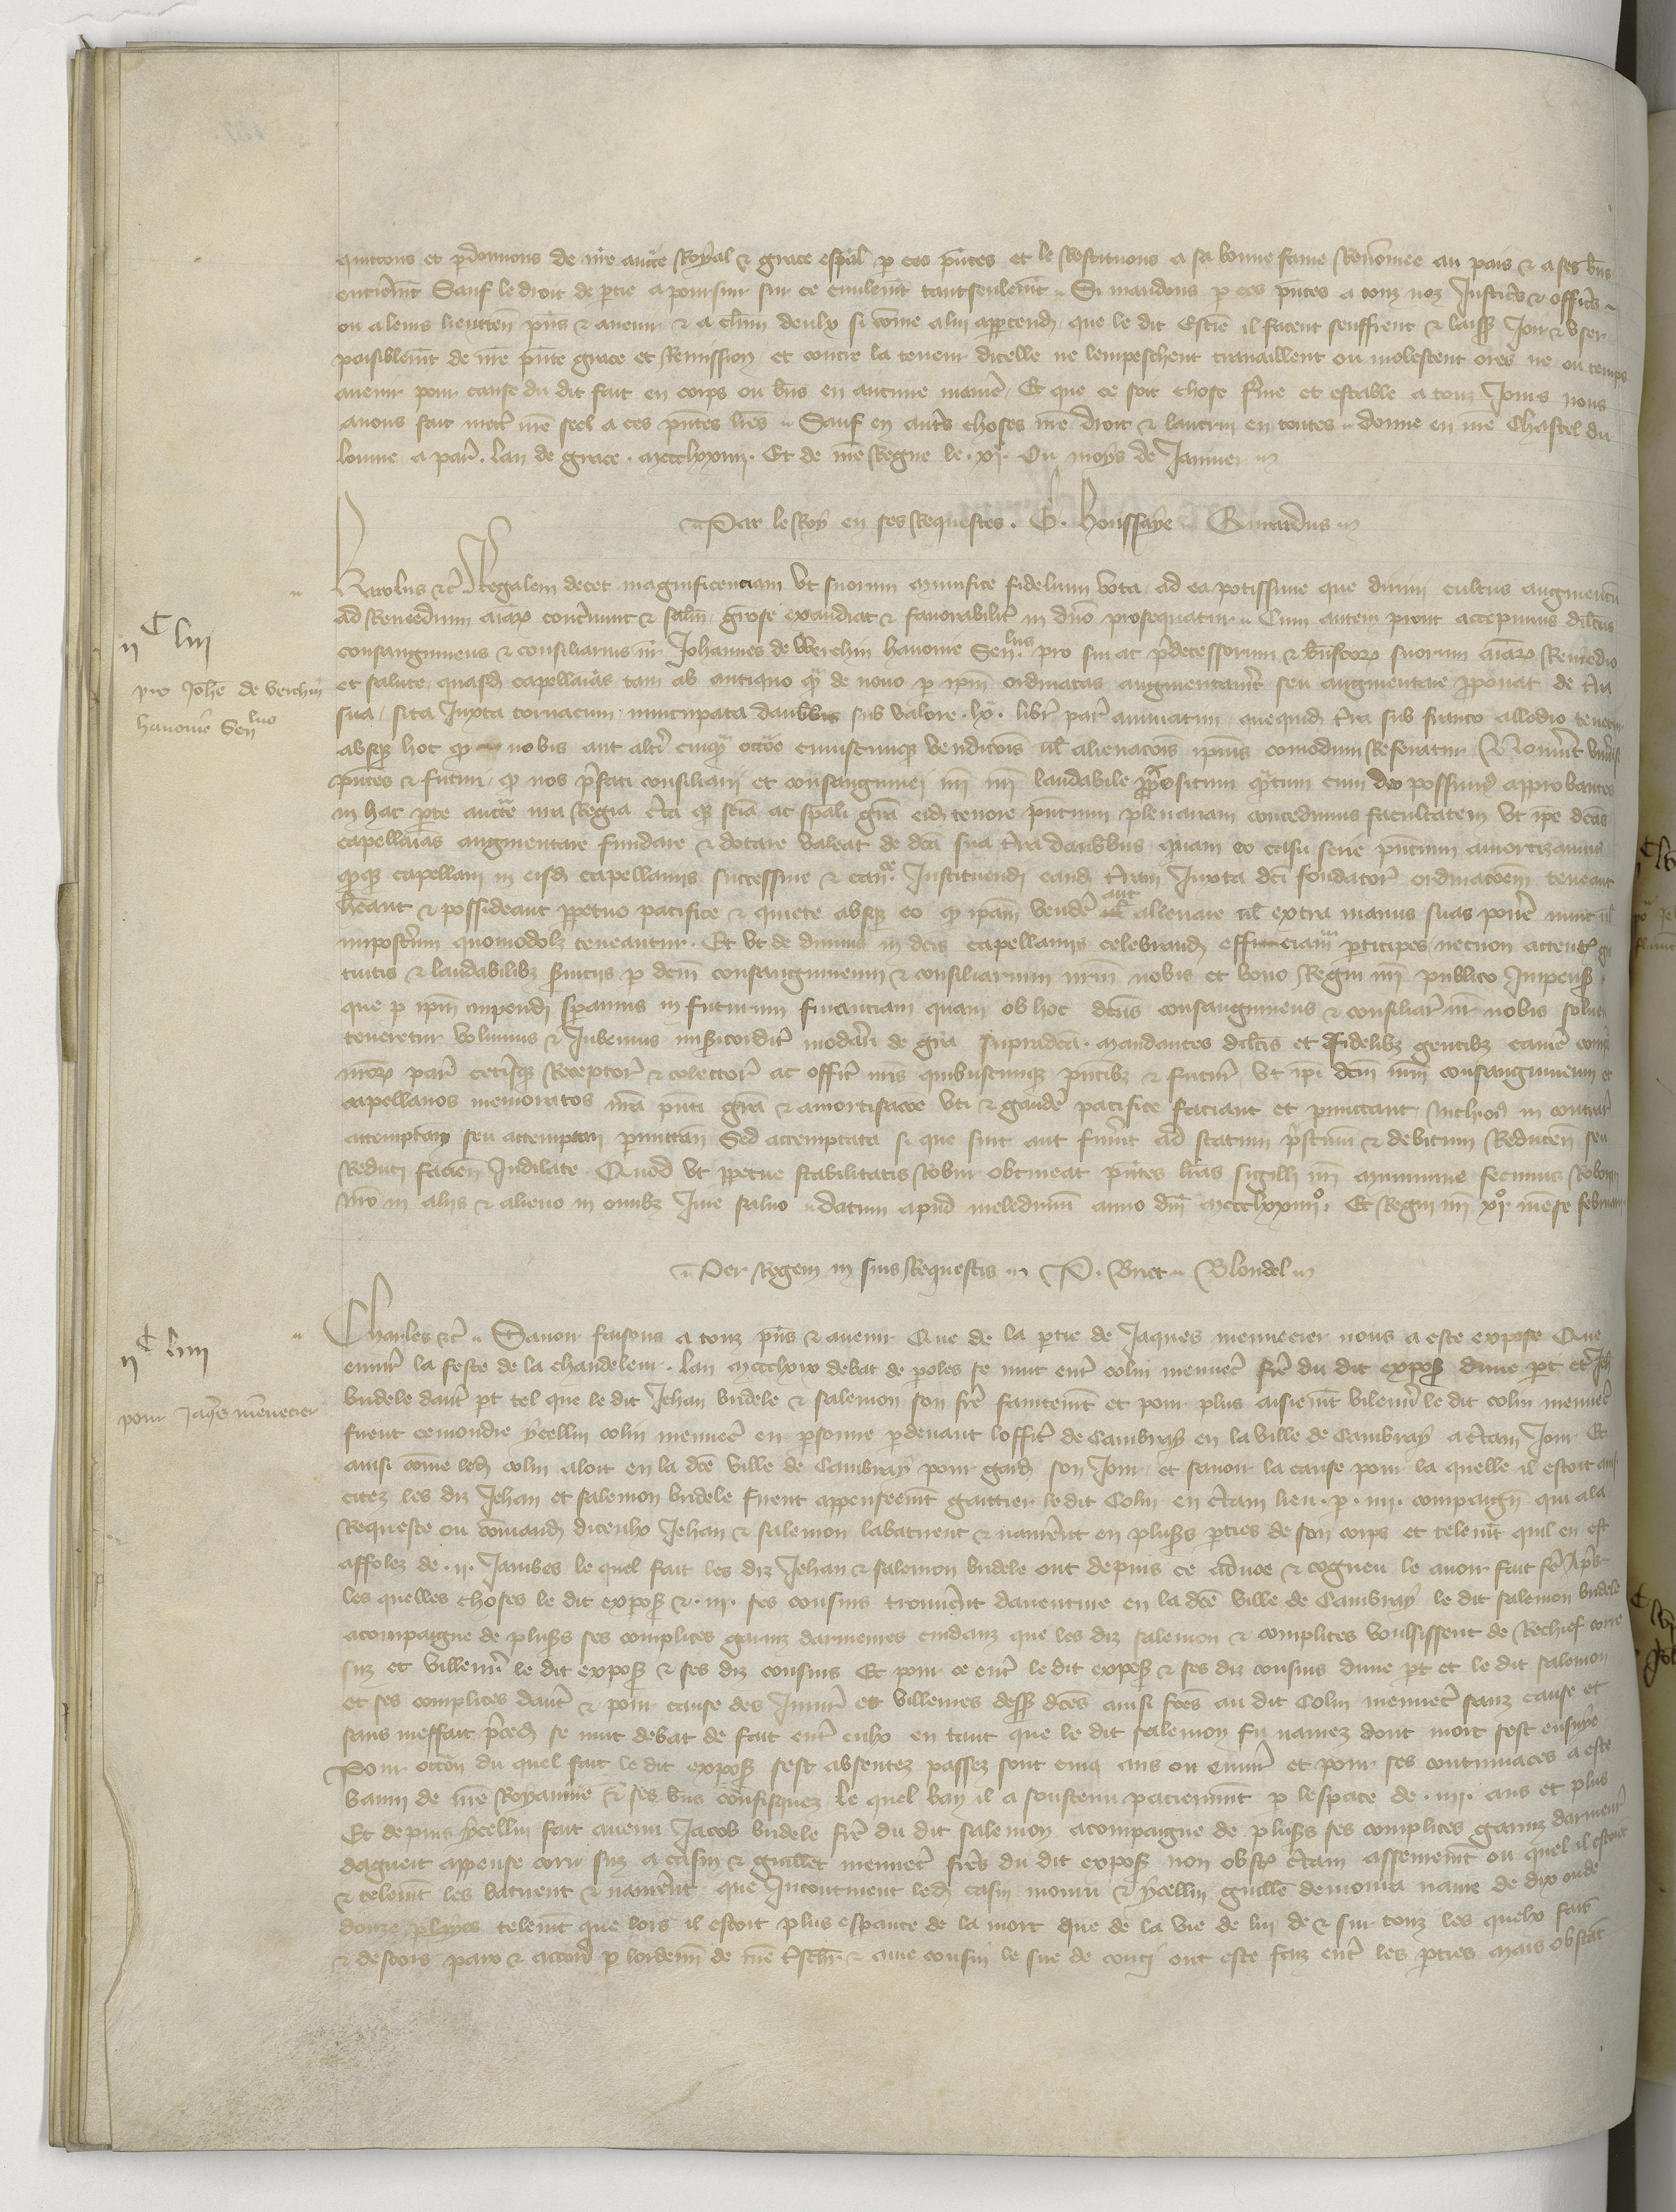 quittons et pdonnons de nre aucte Royal & grace espal p ces pntes et le Restituons a sa bonne fame Renomee au pais & a ses bns
entierement Sauf le droit de ptie a poursuir sur ce civilemt tantseulemt Si mandons p ces pntes a touz noz Justices & offic's
ou a leurs lieuxten pns & avenir & a chun deulx si come a lui apptend que le dit Estie il facent seuffrent & laiss Joir & User
paisiblemt de nre pnte grace et Remission et contre la teneur dicelle ne lempeschent travaillent ou molestent ores ne ou temps
avenir pour cause du dit fait en corps ou bns en aucune manie Et que ce soit chose ferme et estable a touz Jours nous
avons fait mett nre seel a ces pntes lres Sauf en autres choses nre droit & lautrui en toutes donne en nre Chastel du
louvre a par Lan de grace mccclxxiiii Et de nre Regne le xi Ou moys de Janvier
Par le Roy en ses Requestes G. houssaye Girardus
Karolus &c Regalem decet magnificenciam Ut suorum munifice fidelium vota ad ea potissime que divini cultus augmentu
ad Remedium aiarz &  exaudiat & favorabilit in dno prosequatur Cum autem prout accepimus dilcus
consanguineus & consiliarius nr Johannes de Werchin hanonie Senlus pro sui ac predecessorum & suorum aiarz Remedio
et salute quasd capellanias tam ab antiquo q de novo p ipm ordinatas augmentare seu augmentare pponat de tra
sua sita Juxta tornacum nuncupata daubbus sub valore lx libr par annuatim quequid tra sub franco allodio tenetur
absq hoc q nobis aut alti cuiq occoe cuiuscumq vendicois ul alienacois ipius comodum Reservatur Noverint univsi
pntes & futuri q nos pfati consiliarii et consanguinei nri nri laudabile ppositum qtum cum deo possumus approbantes
in hac pte aucte nra Regia certa q scia ac spali gra eid tenore pntium plenariam concedimus facultatem Ut ipe dcas
capellanias augmentare fundare & dotare valeat de dca sua tra daubbus quam eo casu serie pntium amortizamus
qq capellani in eisd capellaniis successive & can Instituend eand tram Juxta dci fundator ordinacoem teneant
heant & possideant ppetuo pacifice & quiete absq eo q ipam vende aut alienare ul extra manus suas pone nunc ul
imposterum quomodolz teneantur Et Ut de divinis in dcis capellaniis celebrand efficiam pticipes necnon attentis gra
tuitis & laudabilibz serviciis p dcm consanguineum & consiliarium nrm nobis et bono Regni nri publico Impensis
que p ipm impendi speramus in futurum financiam quam ob hoc dcus consanguineus & consiliar nr nobis solvere
teneretur Volumus & Jubemus misericordit moderari de gra supradca mandantes dilcis et fidelibz gentibz came comp
nrorz par cetisq Receptor & colector ac offic nris quibuscumq pntibz & futur Ut ipi dcm nrm consanguineum et
capellanos memoratos nra pnti gra & amortisacoe Uti & gaude pacifice faciant et pmittant Nichil in contrar
attemptari seu attemptari pmittan Sed attemptata si que sint aut fuerint ad statum pstinum & debitum Reducen seu
Reduci facien Indilate Quod Ut ppetue stabilitatis Robur obtineat pntes lras sigilli nri munimine fecimus Roborari
nro in aliis & alieno in omibz Jure salvo datum apud meledunum anno dni mccclxxiiiio Et Regni nri xio mense februar
Per Regem in suis Requestis P. Briet Blondel
Charles &c Savoir faisons a touz pns & avenir Que de la ptie de Jaques mennecier nous a este expose Que
envir la feste de la chandeleur Lan mccclxix debat de poles se mut entre colin mennecier frere du dit expos dune pt et Jeh
bridele dautre pt tel que le dit Jehan bridele & salemon son frere faintemt et pour plus aisiemt vilener le dit colin mennecier
firent semondre ycellui colin mennecier en psonne pdevant loffic de Cambray en la Ville de Cambray a ctain Jour Et
ainsi come led colin aloit en la dce ville de Cambray pour gard son Jour et savoir la cause pour la quelle il estoit ainsi
citez les diz Jehan et salemon bridele firent appenseemt gaittier le dit Colin en ctain lieu p iiii compaign qui a la
Requeste ou comand diceulx Jehan & salemon labatirent & navrerent en pluss pties de son corps et telemt quil en est
affolez de ii Jambes le quel fait les diz Jehan & salemon bridele ont depuis ce advoe & cogneu le avoir fait fe Apres
les quelles choses le dit expos & iii ses cousins trouverent daventure en la dce ville de Cambray le dit salemon bridele
acompaigne de pluss ses complices garniz darmeures cuidans que les diz salemon & complices voulsissent de Rechief corre
suz et Villener le dit expos & ses diz cousins Et pour ce entre le dit expos & ses diz cousins dune pt et le dit salemon
et ses complices dautre & pour cause des Injur et Villenies dess dces ainsi fces au dit Colin mennecier sanz cause et
sans meffait preced se mut debat de fait entre eulx en tant que le dit salemon fu navrez dont mort sest ensuye
Pour occon du quel fait le dit expos sest absentez passez sont cinq ans ou envir et pour ses contumaces a este
banni de nre Royaume & ses bns confisquez le quel ban il a soustenu paciemmt p lespace de iiii ans et plus
Et depuis ycellui fait avenu Jacob bridele frere du dit salemon acompaigne de pluss ses complices garniz darmeur
dagueit apense coru suz a casin & guillet mennecier freres du dit expos non obst ctain asseuremt ou quel il estoit
& telemt les batirent & navrerent que Incontinent led casin mouru & ycellui guille demoura navre de dix ou de
douze playes telemt que lors il estoit plus esperance de la mort que de la vie de lui de & sur touz les quelx faiz
& descors paix & accord p lordenn de nre tresch & ame cousin le sire de couci ont este faiz entre les pties Mais obstant
iiC liii
pro Johe de Verchin
hanonie Senlus
iiC liiii
pour Jaqes mennecier